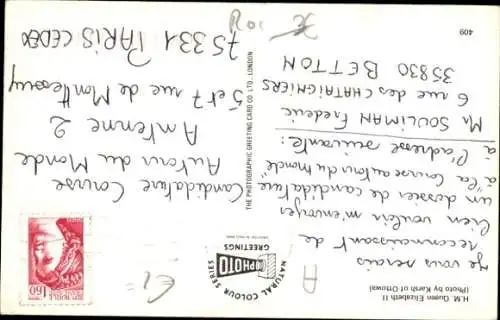 H.M. Queen Elizabeth II
(Photo by Karsh of Ottowa)
409
Je vous serais
reconnaissant de
bien vouloir m'envoyer
un dossier de candidature
à "la Course autour du monde"
à l'adresse suivante :
Mr SOULIMAN Frederic
6 rue des CHATAIGNIERS
35830 BETTON
NATURAL COLOUR SERIES
PHOTO
GREETINGS
THE PHOTOGRAPHIC GREETING CARD CO. LTD., LONDON
Candidature Course
Autour du Monde
Antenne 2
5 et 7 rue de Monttessuy
75331 PARIS CEDEX
1,60
A